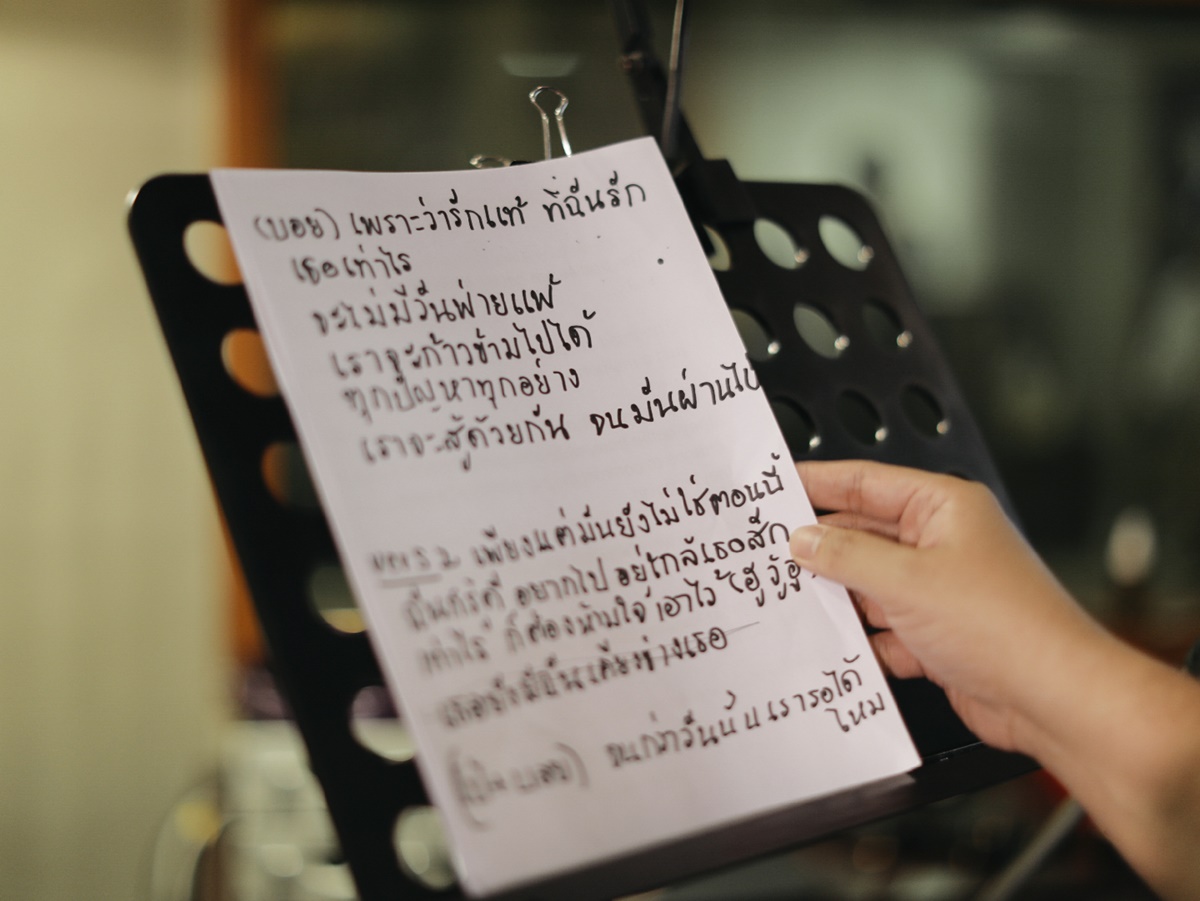 (บอย) เพราะว่ารักแท้ ที่ฉันรัก
เธอเท่าไร
จะไม่มีวันพ่ายแพ้
เราจะก้าวข้ามไปได้
ทุกปัญหาทุกอย่าง
เราจะสู้ด้วยกัน จนมันผ่านไป
เพียงแต่มันยังไม่ใช่ตอนนี้
อยากไป อยู่ใกล้เธอสัก
เท่าไร ก็ต้องห้ามใจ เอาไว้
เธอยังมีฉันเคียงข้างเธอ
จนกว่าวันนั้น เรารอได้
ไหม